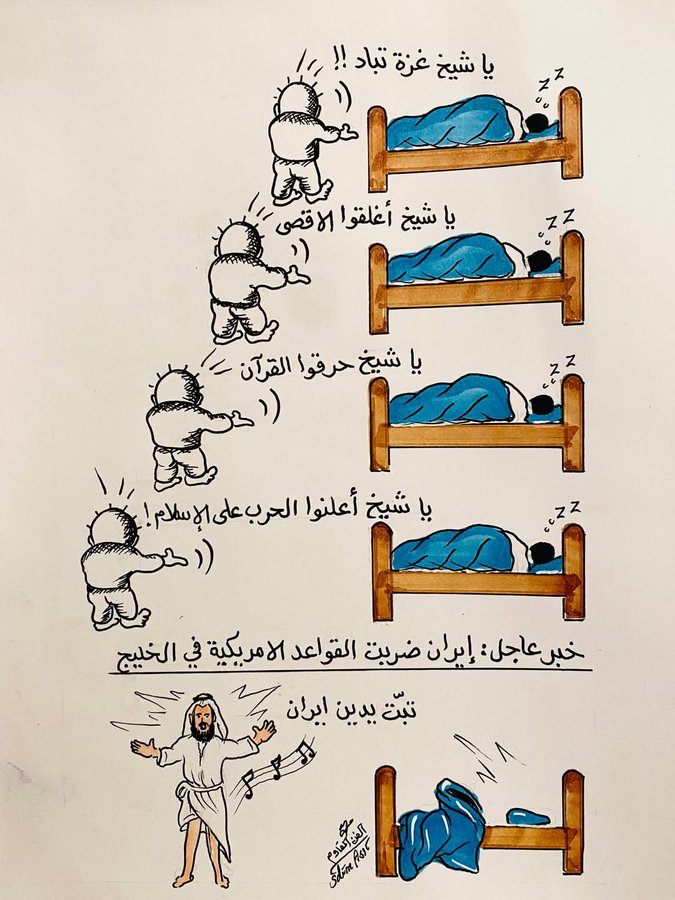 يا شيخ غزة تباد !!
z z
يا شيخ أغلقوا الاقصى
z z
يا شيخ حرقوا القرآن
z z
يا شيخ أعلنوا الحرب على الإسلام !
z z
خبر عاجل : إيران ضربت القواعد الامريكية في الخليج
تبّت يدين ايران
الفن المقاوم